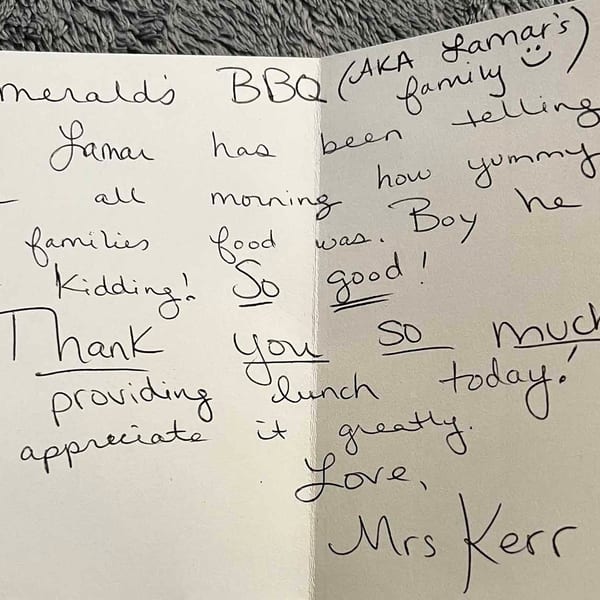 merald's BBQ (AKA Lamar's family ☺)
Lamar has been telling
all morning how yummy
families food was. Boy he
Kidding! So good!
Thank you so much
providing lunch today!
appreciate it greatly.
Love,
Mrs Kerr